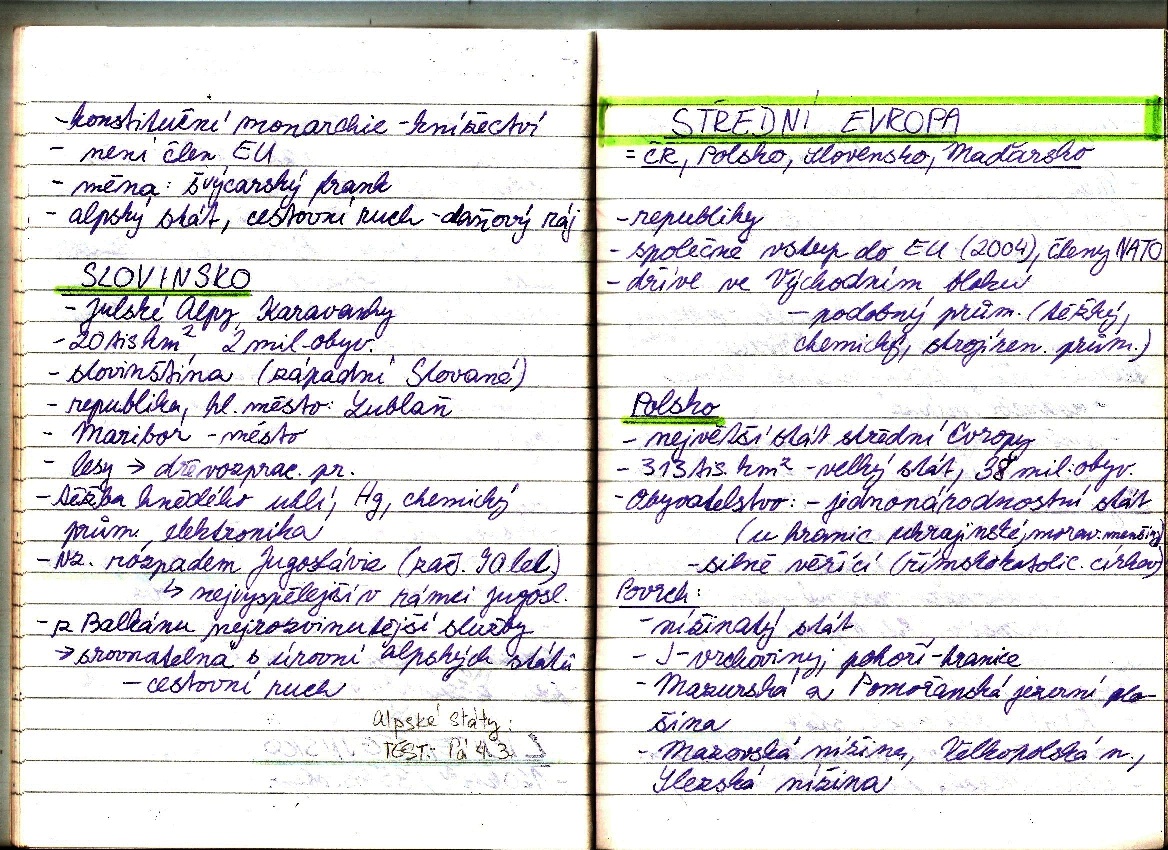 - konstituční monarchie - knížectví
- není člen EU
- měna: švýcarský frank
- alpský stát, cestovní ruch - daňový ráj
SLOVINSKO
- Julské Alpy, Karavanky
- 20 tis km² 2 mil. obyv.
- slovinština (západní Slované)
- republika, hl. město: Lublaň
- Maribor - město
- lesy → dřevozprac. pr.
- těžba hnědého uhlí, Hg, chemický
prům., elektronika
- vz. rozpadem Jugoslávie (zač. 90 let)
↳ nejvyspělejší v rámci Jugosl.
- z Balkánu nejrozvinutější služby
→ srovnatelná s úrovní alpských států
- cestovní ruch
Alpské státy:
TEST: Pá 4.3.
STŘEDNÍ EVROPA
= ČR, Polsko, Slovensko, Maďarsko
- republiky
- společně vstup do EU (2004), členy NATO
- dříve ve Východním bloku
- podobný prům. (těžký,
chemický, strojíren. prům.)
Polsko
- největší stát střední Evropy
- 313 tis. km² - velký stát, 38 mil. obyv.
- Obyvatelstvo: - jednonárodnostní stát
(u hranic ukrajinské, morav. menšiny)
- silně věřící (římskokatolic. církev)
Povrch:
- nížinatý stát
- J - vrchoviny, pohoří - hranice
- Mazurská a Pomořanská jezerní plo-
šina
- Mazovská nížina, Velkopolská n.,
Slezská nížina